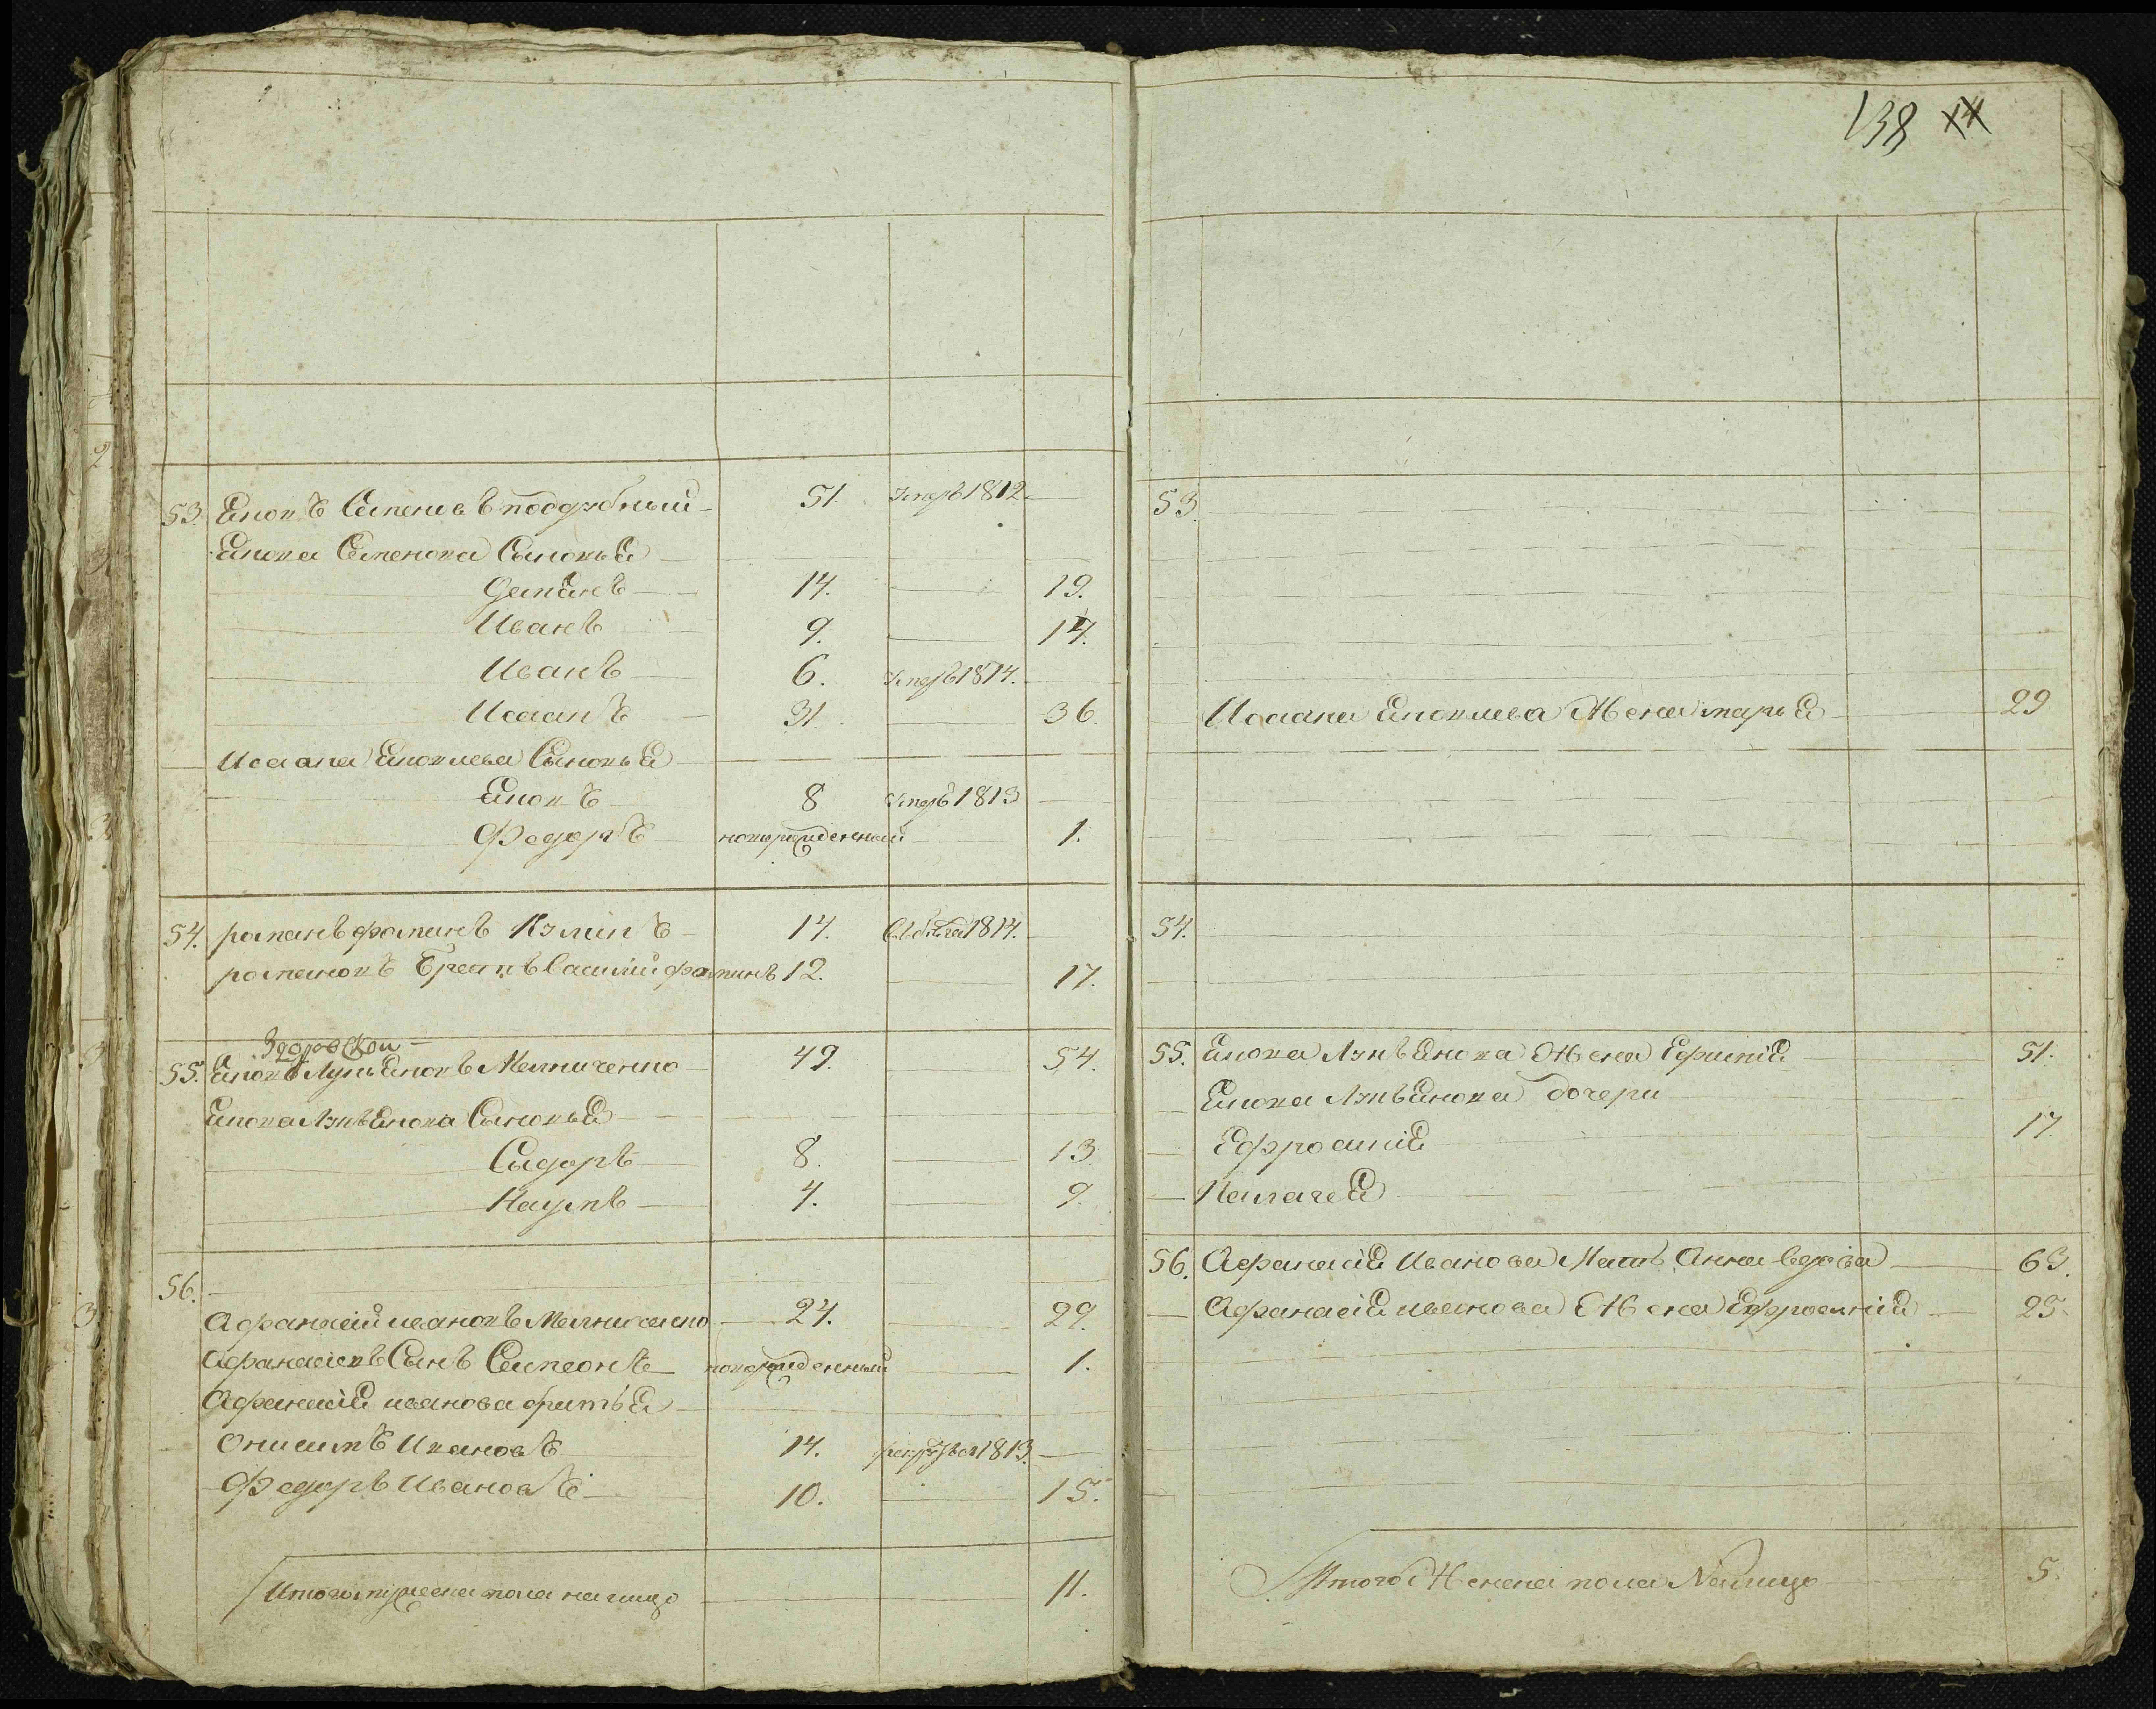 138 14
53. Яковъ Семеновъ поддубный 51. Умеръ 1812
Якова Семенова Сыновья
Демянъ 14. 19.
Иванъ 9. 14.
Иванъ 6. Умеръ 1814.
Исаакъ 31. 36.
Исаака Яковлева Сыновья
Яковъ 8 Умеръ 1813
Федоръ новорожденный 1.
54. романъ фоминъ 14. 1814.
романовъ братъ Василий фоминъ 12. 17.
Здоровской
55. Яковъ Лукьяновъ Мелниченко 49. 54.
Якова Лукьянова Сыновья
Сидоръ 8. 13
Наумъ 4. 9.
56.
Афанасий ивановъ Мелниченко 24. 29.
Афанасиевъ Сынъ Симеонъ новорожденный 1.
Афанасия иванова братья
Онисимъ Ивановъ 14. 1813.
Федоръ Ивановъ 10. 15.
Итого мужеска пола на лицо 11.
53.
Исаака Яковлева Жена марья 29
54.
55. Якова Лукьянова Жена Ефимия 51.
Якова Лукьянова дочери
Ефросиния 17.
Пелагея
56. Афанасия Иванова Мать Анна вдова 63.
Афанасия иванова Жена Ефросиния 25.
Итого Женска пола На лицо 5.